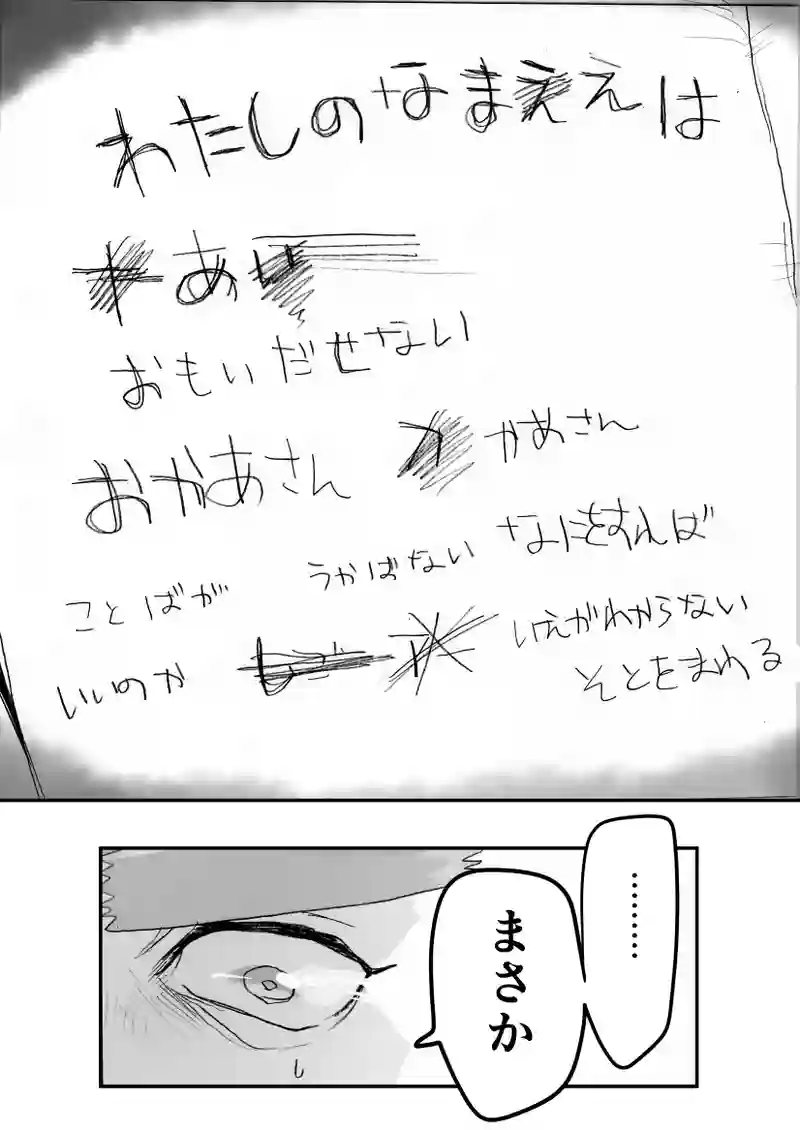 わたしのなまええは
あい
おもいだせない
おかあさん かあさん
ことばが うかばない なにをすんば
いいのか いえがわからない
そとをまわる
………
まさか